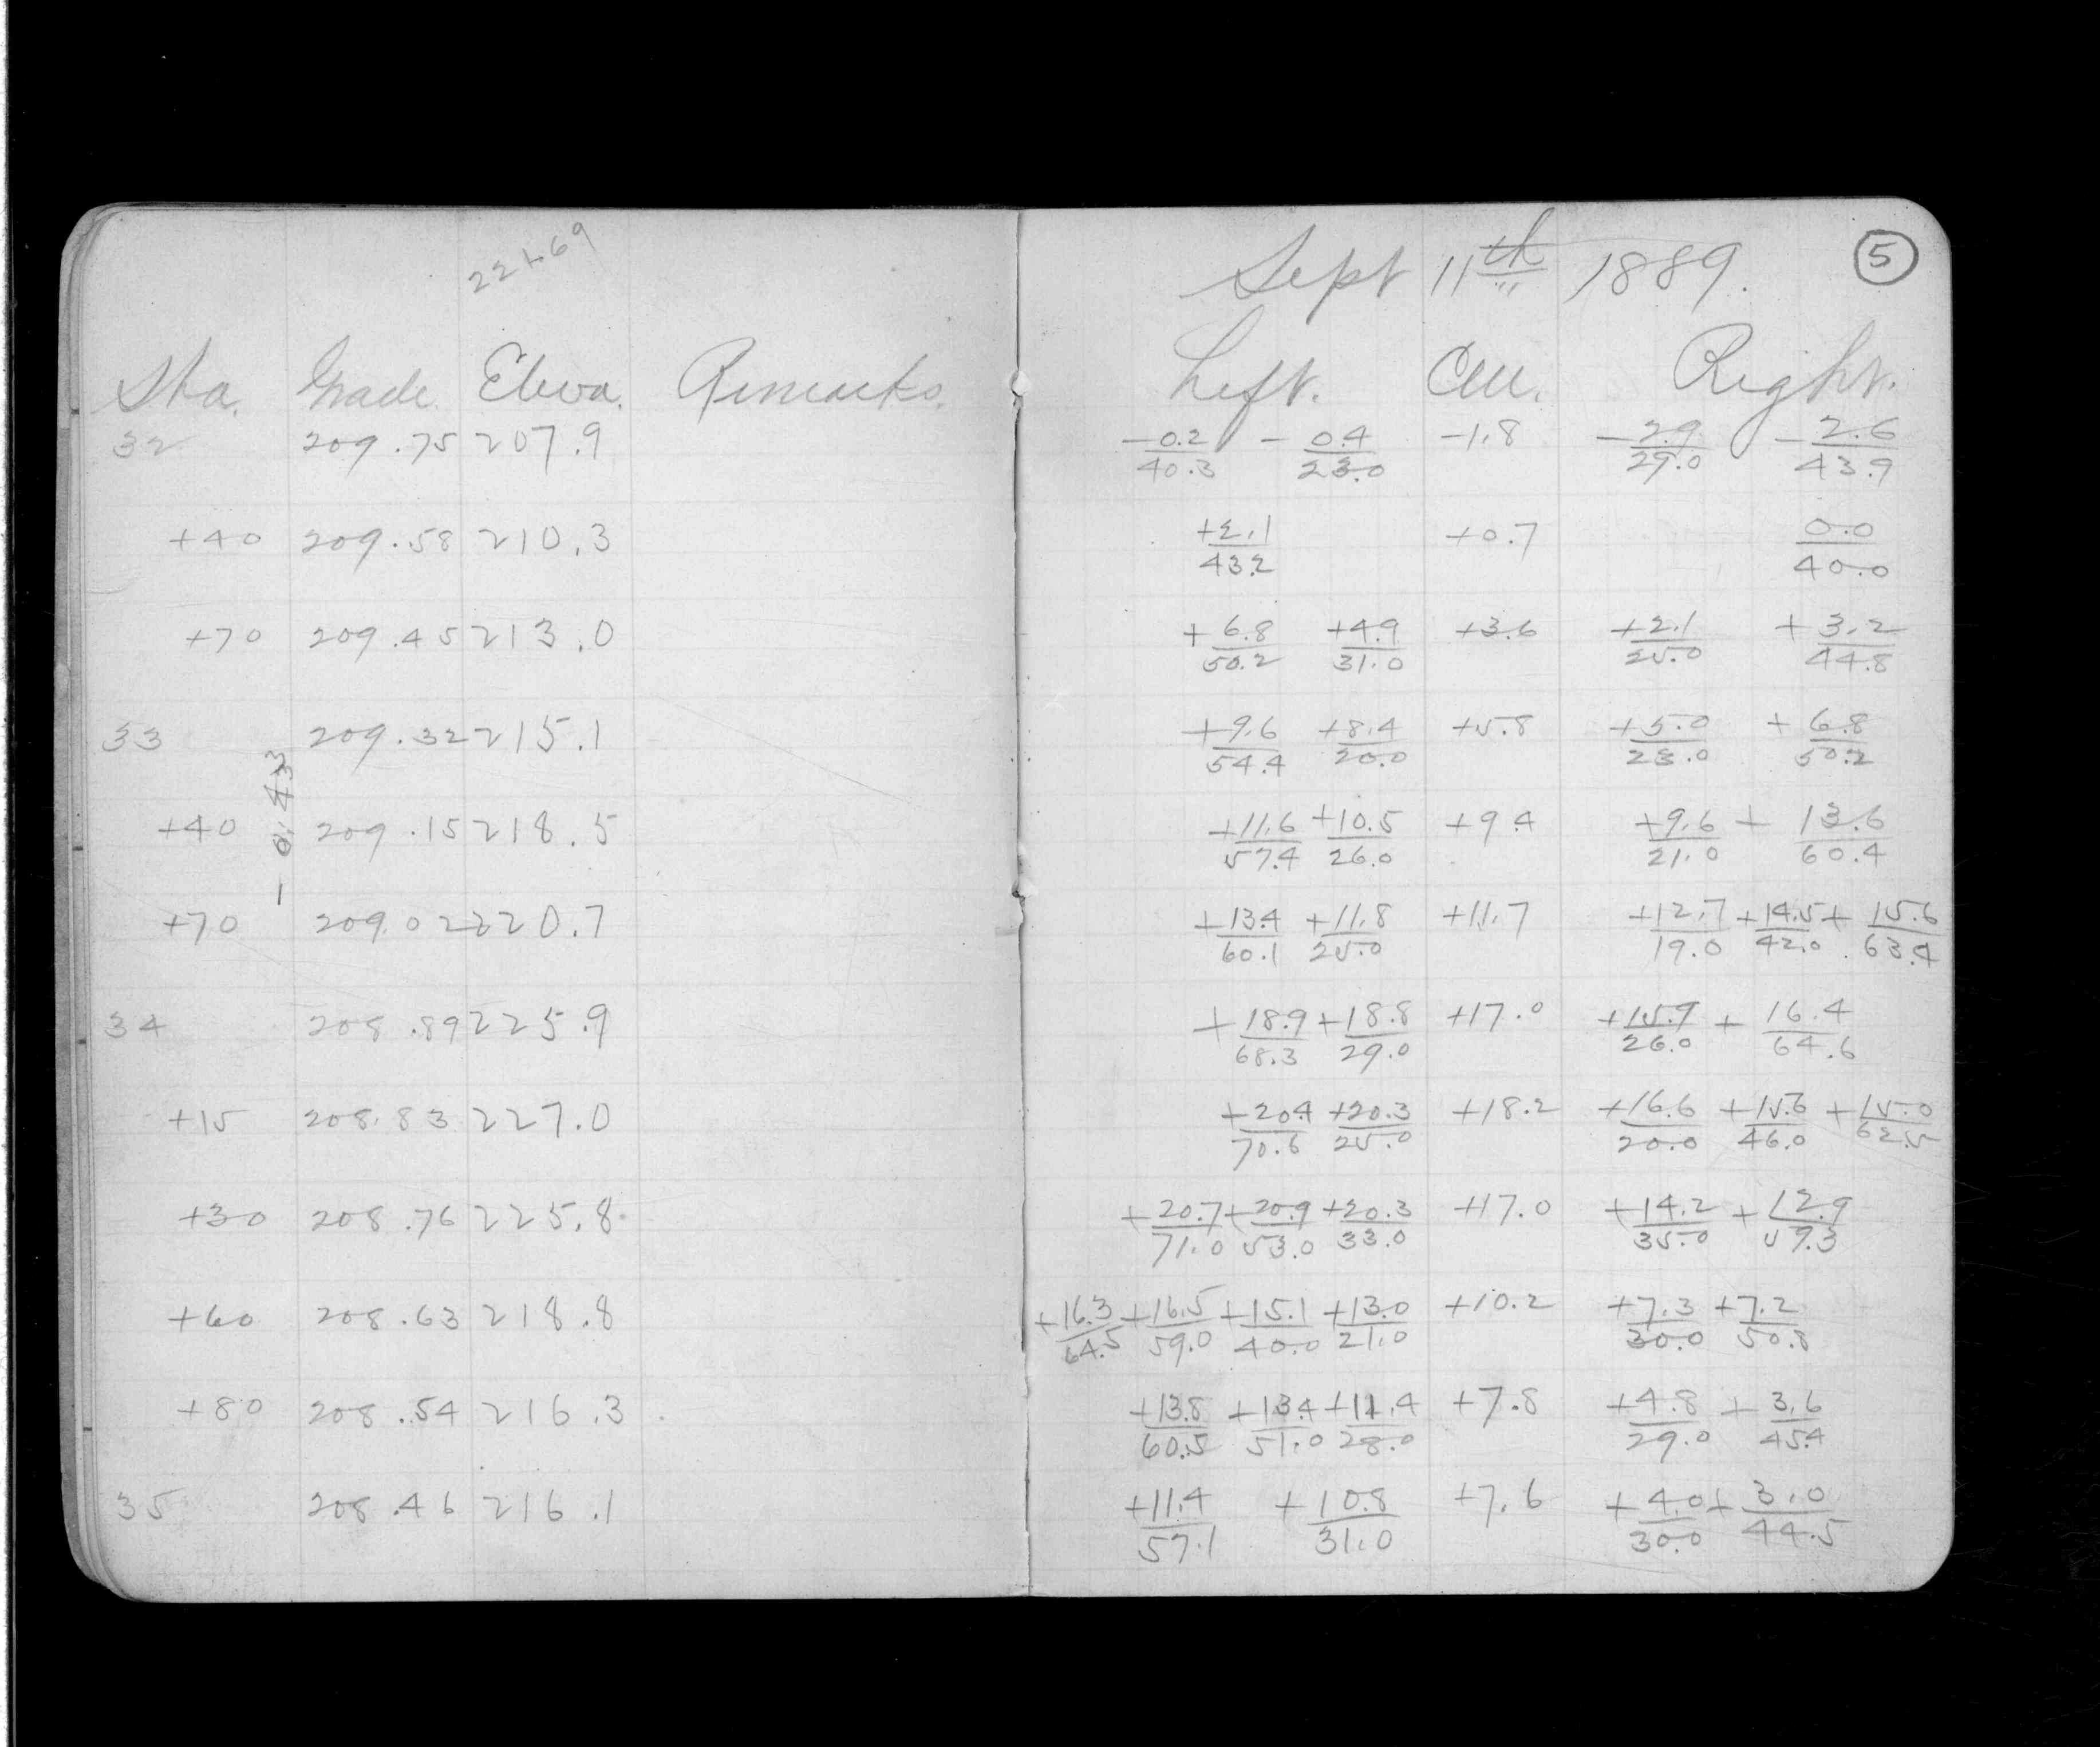 Sept 11th 1889. 5
Sta. Grade Eleva. Remarks. Left. Cen. Right.
32 209.75 207.9 -0.2/40.3 -0.4/23.0 -1.8 -2.9/29.0 -2.6/43.9
+40 209.58 210.3 +2.1/43.2 +0.7 0.0/40.0
+70 209.45 213.0 +6.8/50.2 +4.9/31.0 +3.6 +2.1/25.0 +3.2/44.8
33 209.32 215.1 +9.6/54.4 +8.4/20.0 +5.8 +5.0/23.0 +6.8/50.2
- 0.433
+40 209.15 218.5 +11.6/57.4 +10.5/26.0 +9.4 +9.6/21.0 +13.6/60.4
+70 209.02 220.7 +13.4/60.1 +11.8/25.0 +11.7 +12.7/19.0 +14.5/42.0 +15.6/63.4
34 208.89 225.9 +18.9/68.3 +18.8/29.0 +17.0 +15.9/26.0 +16.4/64.6
+15 208.83 227.0 +20.4/70.6 +20.3/25.0 +18.2 +16.6/20.0 +15.6/46.0 +15.0/62.5
+30 208.76 225.8 +20.7/71.0 +20.9/53.0 +20.3/33.0 +17.0 +14.2/35.0 +12.9/59.3
+60 208.63 218.8 +16.3/64.5 +16.5/59.0 +15.1/40.0 +13.0/21.0 +10.2 +7.3/30.0 +7.2/50.8
+80 208.54 216.3 +13.8/60.5 +13.4/51.0 +11.4/28.0 +7.8 +4.8/29.0 +3.6/45.4
35 208.46 216.1 +11.4/57.1 +10.8/31.0 +7.6 +4.0/30.0 +3.0/44.5